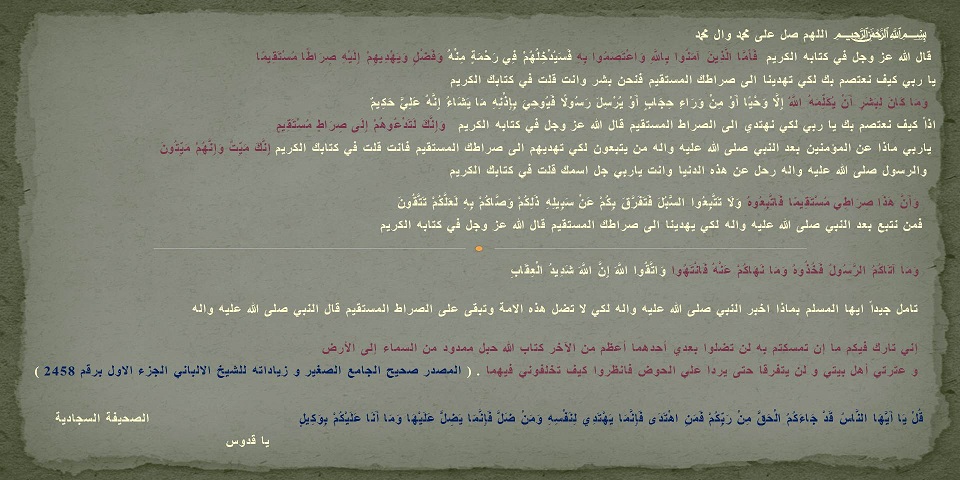 ﷽ اللهم صل على محمد وال محمد
قال الله عز وجل في كتابه الكريم فَأَمَّا الَّذِينَ آمَنُوا بِاللَّهِ وَاعْتَصَمُوا بِهِ فَسَيُدْخِلُهُمْ فِي رَحْمَةٍ مِنْهُ وَفَضْلٍ وَيَهْدِيهِمْ إِلَيْهِ صِرَاطًا مُسْتَقِيمًا
يا ربي كيف نعتصم بك لكي تهدينا الى صراطك المستقيم فنحن بشر وانت قلت في كتابك الكريم
وما كَانَ لِبَشَرٍ أَنْ يُكَلِّمَهُ اللَّهُ إِلَّا وَحْيًا أَوْ مِنْ وَرَاءِ حِجَابٍ أَوْ يُرْسِلَ رَسُولًا فَيُوحِيَ بِإِذْنِهِ مَا يَشَاءُ إِنَّهُ عَلِيٌّ حَكِيمٌ
اذاً كيف نعتصم بك يا ربي لكي نهتدي الى الصراط المستقيم قال الله عز وجل في كتابه الكريم وَإِنَّكَ لَتَدْعُوهُمْ إِلَى صِرَاطٍ مُسْتَقِيمٍ
ياربي ماذا عن المؤمنين بعد النبي صلى الله عليه واله من يتبعون لكي تهديهم الى صراطك المستقيم فانت قلت في كتابك الكريم إِنَّكَ مَيِّتٌ وَإِنَّهُمْ مَيِّتُونَ
والرسول صلى الله عليه واله رحل عن هذه الدنيا وانت ياربي جل اسمك قلت في كتابك الكريم
وَأَنَّ هَذَا صِرَاطِي مُسْتَقِيمًا فَاتَّبِعُوهُ وَلَا تَتَّبِعُوا السُّبُلَ فَتَفَرَّقَ بِكُمْ عَنْ سَبِيلِهِ ذَلِكُمْ وَصَّاكُمْ بِهِ لَعَلَّكُمْ تَتَّقُونَ
فمن نتبع بعد النبي صلى الله عليه واله لكي يهدينا الى صراطك المستقيم قال الله عز وجل في كتابه الكريم
وَمَا آتَاكُمُ الرَّسُولُ فَخُذُوهُ وَمَا نَهَاكُمْ عَنْهُ فَانْتَهُوا وَاتَّقُوا اللَّهَ إِنَّ اللَّهَ شَدِيدُ الْعِقَابِ
تامل جيداً ايها المسلم بماذا اخبر النبي صلى الله عليه واله لكي لا تضل هذه الامة وتبقى على الصراط المستقيم قال النبي صلى الله عليه واله
إني تارك فيكم ما إن تمسكتم به لن تضلوا بعدي أحدهما أعظم من الآخر كتاب الله حبل ممدود من السماء إلى الأرض
و عترتي أهل بيتي و لن يتفرقا حتى يردا علي الحوض فانظروا كيف تخلفوني فيهما . ( المصدر صحيح الجامع الصغير و زياداته للشيخ الالباني الجزء الاول برقم 2458 )
قُلْ يَا أَيُّهَا النَّاسُ قَدْ جَاءَكُمُ الْحَقُّ مِنْ رَبِّكُمْ فَمَنِ اهْتَدَى فَإِنَّمَا يَهْتَدِي لِنَفْسِهِ وَمَنْ ضَلَّ فَإِنَّمَا يَضِلُّ عَلَيْهَا وَمَا أَنَا عَلَيْكُمْ بِوَكِيلٍ
الصحيفة السجادية
يا قدوس